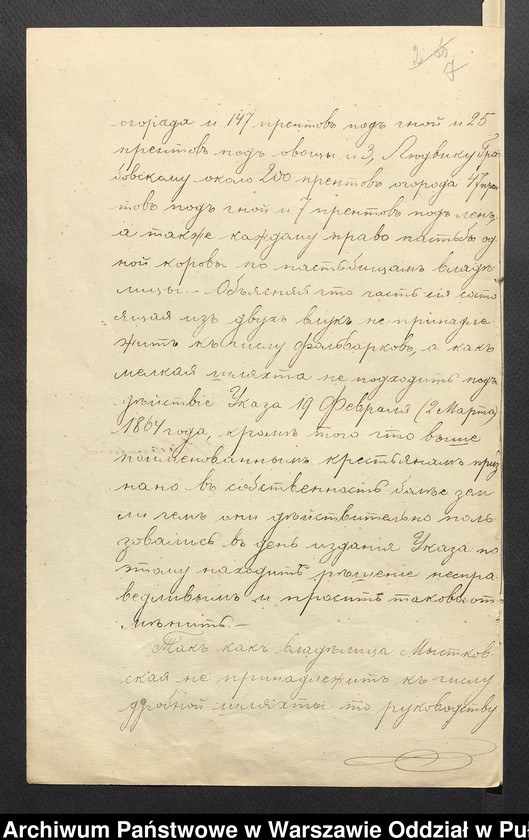 огорода и 147 прентовъ подъ гной и 25
прентовъ подъ овощи и 3, Людвику Гра
бовскому около 200 прентовъ огорода 47 прен
товъ подъ гной и 7 прентовъ подъ ленъ,
а также каждому право пастьбы од
ной коровы по пастбищамъ владѣ
лицы. – Объясняя что часть сія состо
ящая изъ двухъ влукъ не принадле
житъ къ числу фольварковъ, а какъ
мелкая шляхта не подходитъ подъ
дѣйствіе Указа 19 Февраля (2 Марта)
1864 года, кромѣ того что выше
поименованнымъ крестьянамъ приз
нано въ собственность болѣе зем
ли чемъ они дѣйствительно поль
зовались въ день изданія Указа по
этому находитъ рѣшеніе неспра
ведливымъ и проситъ таковое от
мѣнить. –
Такъ какъ владѣлица Мыстков
ская не принадлежитъ къ числу
дробной шляхты то руководству
Archiwum Państwowe w Warszawie Oddział w Pu